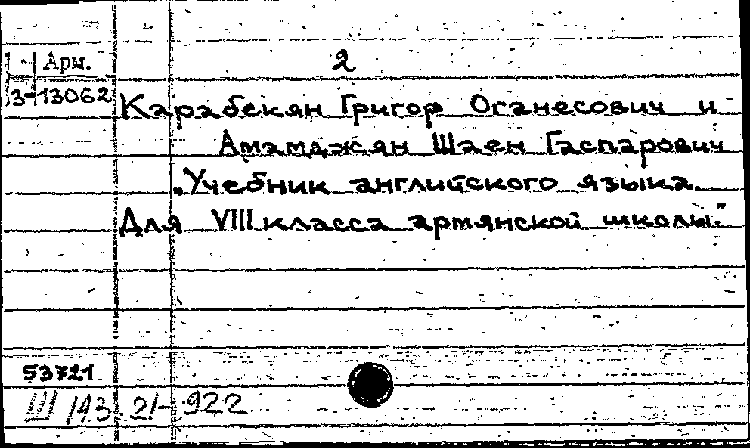 Арм.
2
3-13062
Карабекян Григор Оганесович и
Амамджян Шаен Гаспарович
„Учебник английского языка
Для VIII класса армянской школы."
53721
Ш 143 21-922